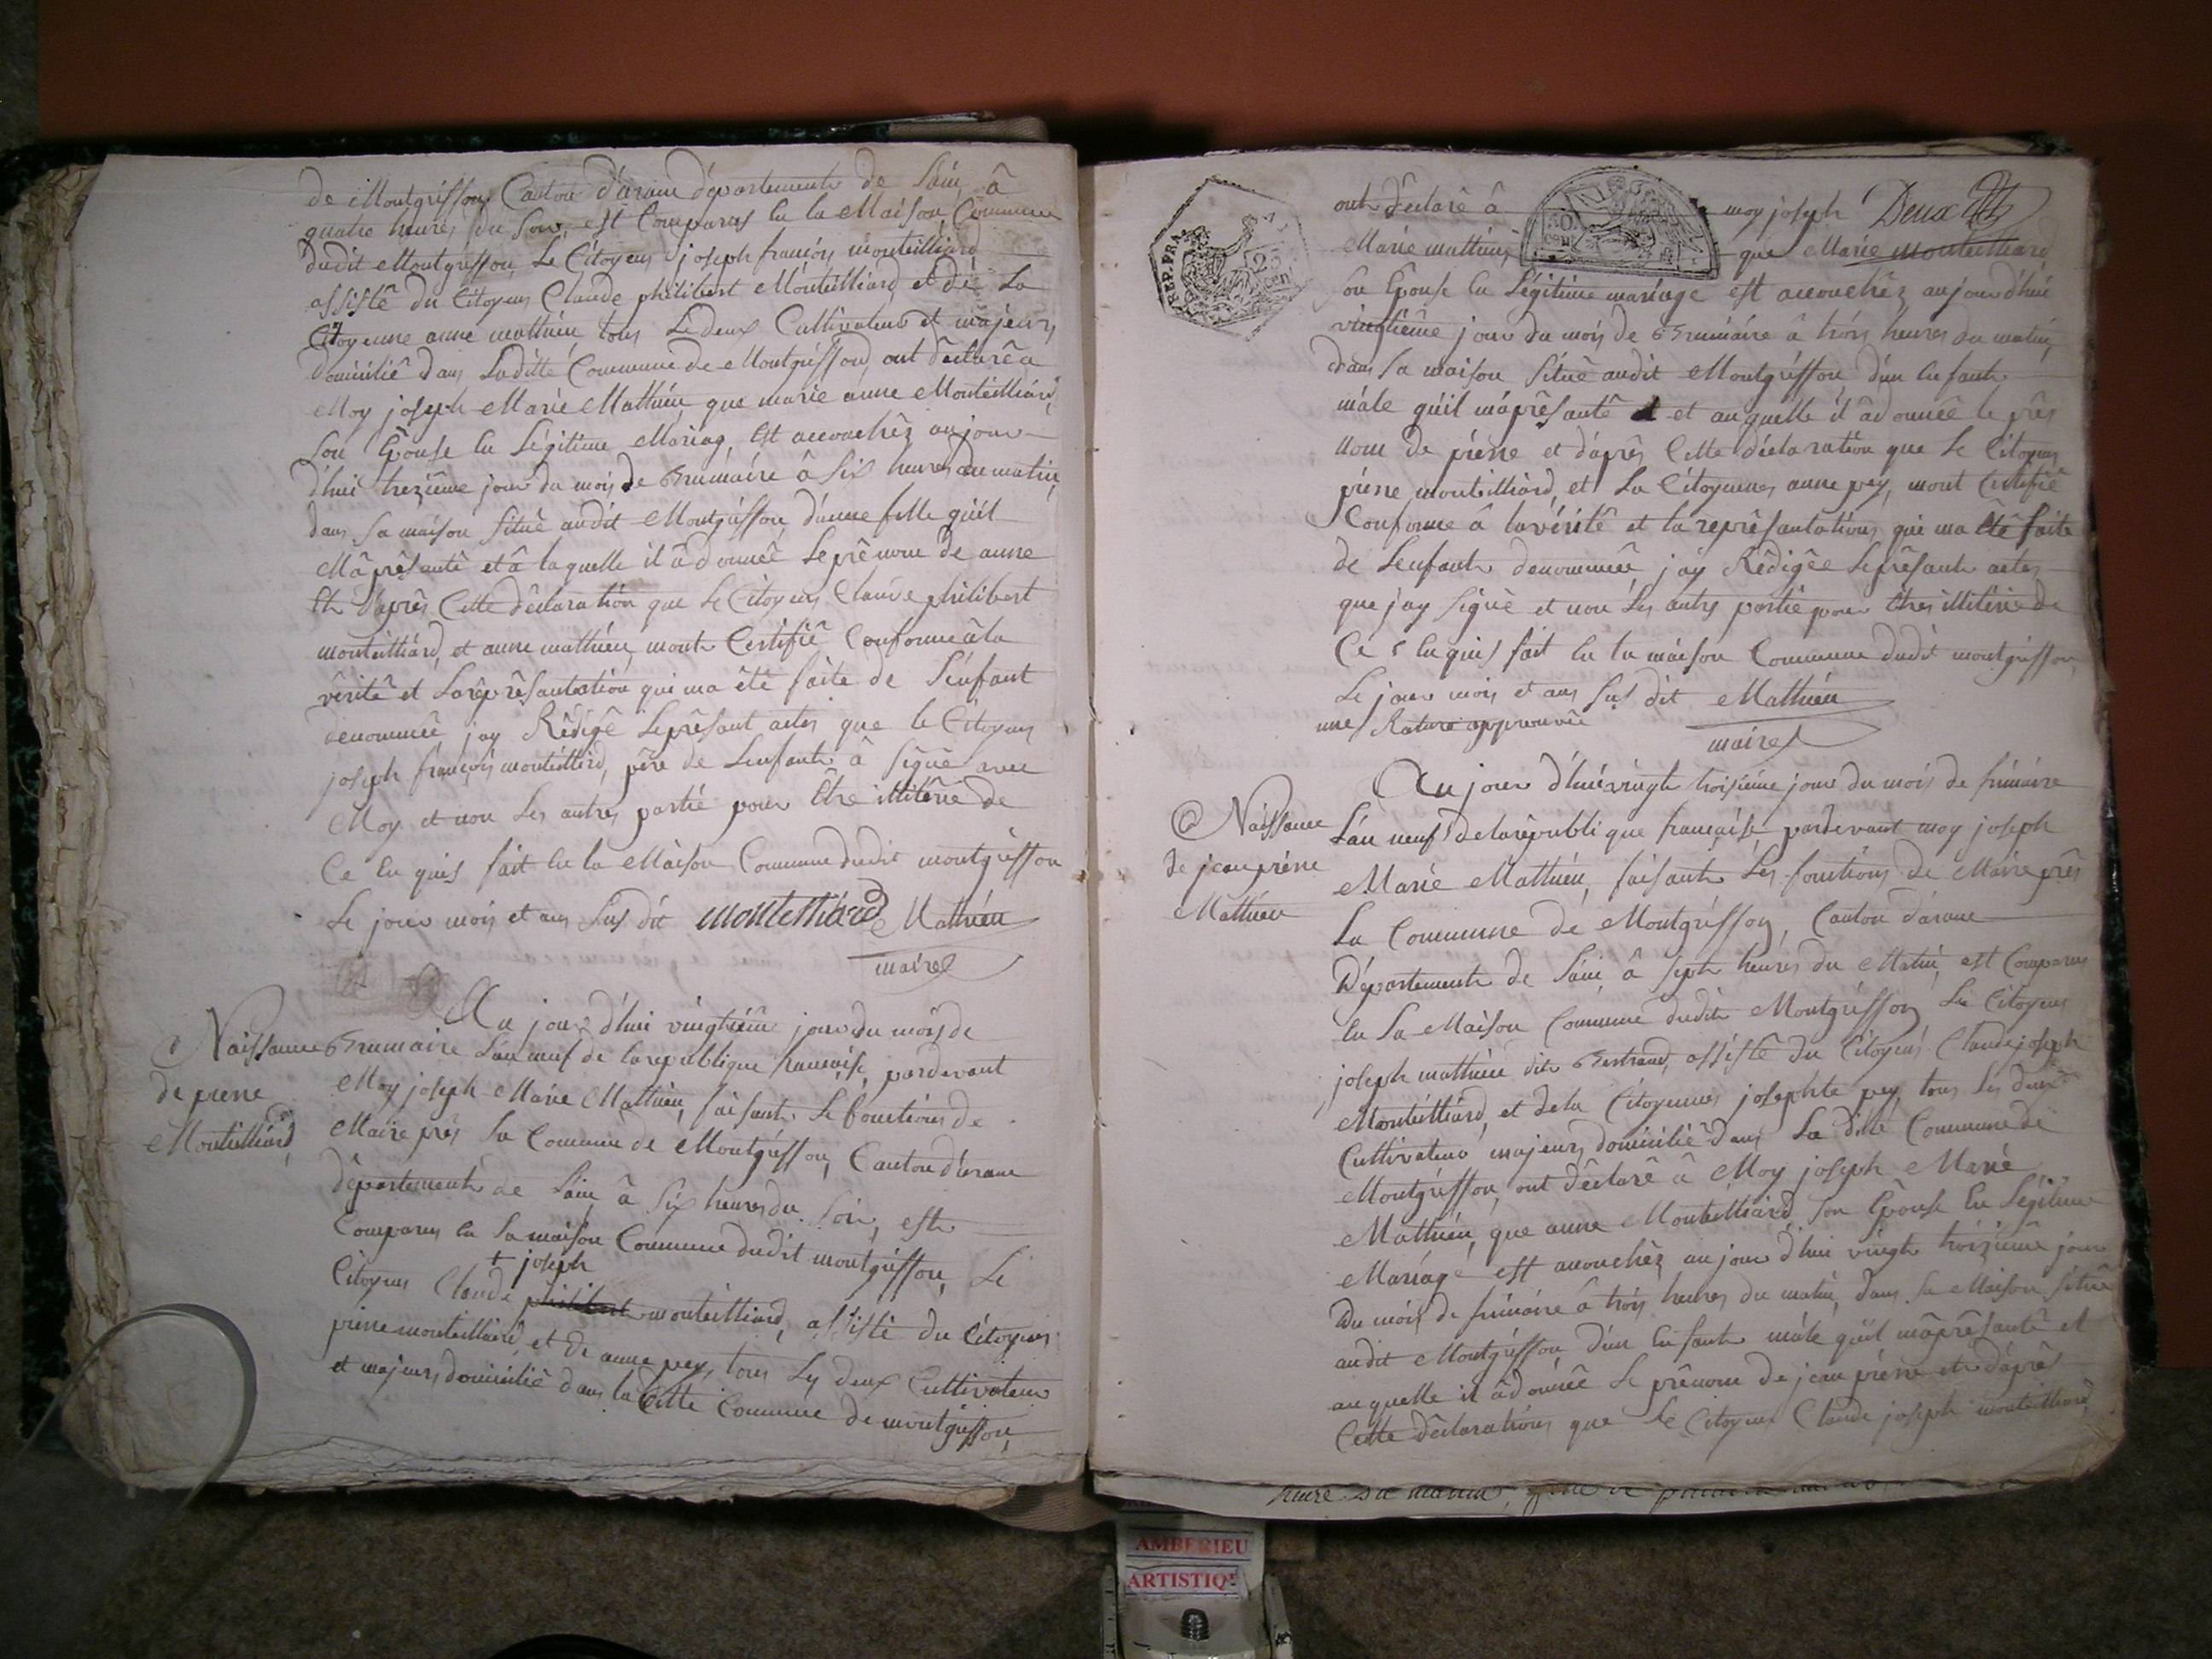 de Montgriffon Canton d'arane département de Lain, â
quatre heures du Soir, est Comparus En la Maison Commune
dudit Montgriffon, Le Citoyens joseph françois monteilliard
assistê du Citoyens Claude philibert Monteilliard et de La
Citoyenne anne mathieu, tous Ledeux Cultivateur et majeurs
domiciliê dans Laditte Commune de Montgriffon, ont dêclarê a
Moy joseph Marie Mathieu, que marie anne Monteilliard,
Son Êpouse En Légitime Mariag, Est accouchêz aujour
d'hui trezième jour du mois de Brumaire â Six heures du matin,
dans Sa maison Situê audit Montgriffon, d'une fille quil
Mâ prêsantê et â laquelle il â donnêê Leprênom de anne
Et daprês Cette dêclaration que Le Citoyens Claude philibert
monteilliard, et anne mathieu, mont Certifiê Conforme âla
vêritê et Larêprêsantation qui ma êtê faite de Lenfant
denommêê, jay Rêdigê Leprêsant actes que le Citoyens
joseph françois monteilliard, pêre de Lenfant â Signê avec
Moy et non Les autres partiê pour Être illitêrê de
Ce En quis fait En la Maison Commune dudit montgriffon
Le jour mois et ans Sus dit monteilliard Mathieu
maire
Au jour d'hui vingtième jour du mois de
Naissance
de pierre
Monteilliard,
Brumaire Lan neuf de larepublique francaise, pardevant
Moy joseph Marie Mathieu, faisant Lê fonctions de
Maire prês La Commune de Montgriffon, Canton d'arane
département de Lain, â Six heures du Soir, est
Comparus En La maison Commune dudit montgriffon, Le
+ joseph
Citoyens Claude philibert monteilliard, assistê du Citoyens
pierre monteilliard, et de anne pey, tous Les deux Cultivateur
et majeurs domiciliê dans la ditte Commune de montgriffon,
REP. FRA.
25
cen.
50
cen
ont dêclarê â moy joseph Deux
Marie mathieu, que Marie monteilliard
Son Êpouse En Légitime mariage est accouchêz aujourd'hui
vingtième jour du mois de Brumaire â trois heures du matin,
dans Sa maison Situê audit Montgriffon, d'un Enfant
mâle quil mâprêsantê et auquelle il âdonnêê le prês
nom de pierre et daprês Cette dêclaration que Le Citoyens
pierre monteilliard, et La Citoyennes anne pey, mont Certifiê
Conforme â lavêritê et la reprêsantations qui ma Êtê faite
de Lenfant denommêê, jay Rêdigêê Leprêsant actes
que jay Signê et non Les autres partiê pour Êtres illitêrê de
Ce En quis fait En la maison Commune dudit montgriffon,
Le jour mois et ans Sus dit Mathieu
une Rature approuvêê
maire
Au jour d'hui vingt troisième jour du mois de frimaire
Naissance
de jean pierre
Mathieu
Lan neuf de larêpublique française pardevant moy joseph
Marie Mathieu, faisant Les fonctions de Maire prês
La Commune de Montgriffon, Canton d'arane
Département de Lain, â Sept heures du Matin, est Comparus
En La Maison Commune dudit Montgriffon, Le Citoyens
joseph mathieu dit Bertrand, assistê du Citoyens Claude joseph
Monteilliard, et de la Citoyennes josephte pey, tous Les deux
Cultivateur majeurs domiciliê dans La ditte Commune de
Montgriffon, ont dêclarê â Moy joseph Marie
Mathieu, que anne Monteilliard Son Êpouse En Légitime
Mariage est accouchêz au jour d'hui vingt troizième jour
Du mois de frimaire â trois heures du matin, dans Sa Maison Situê
audit Montgriffon, d'un Enfant mâle quil mâprêsantê et
auquelle il âdonnêê Le prênom de jean pierre et daprês
Cette dêclarations que Le Citoyens Claude joseph monteilliard,
heure du matin,
AMBERIEU
ARTISTIQ